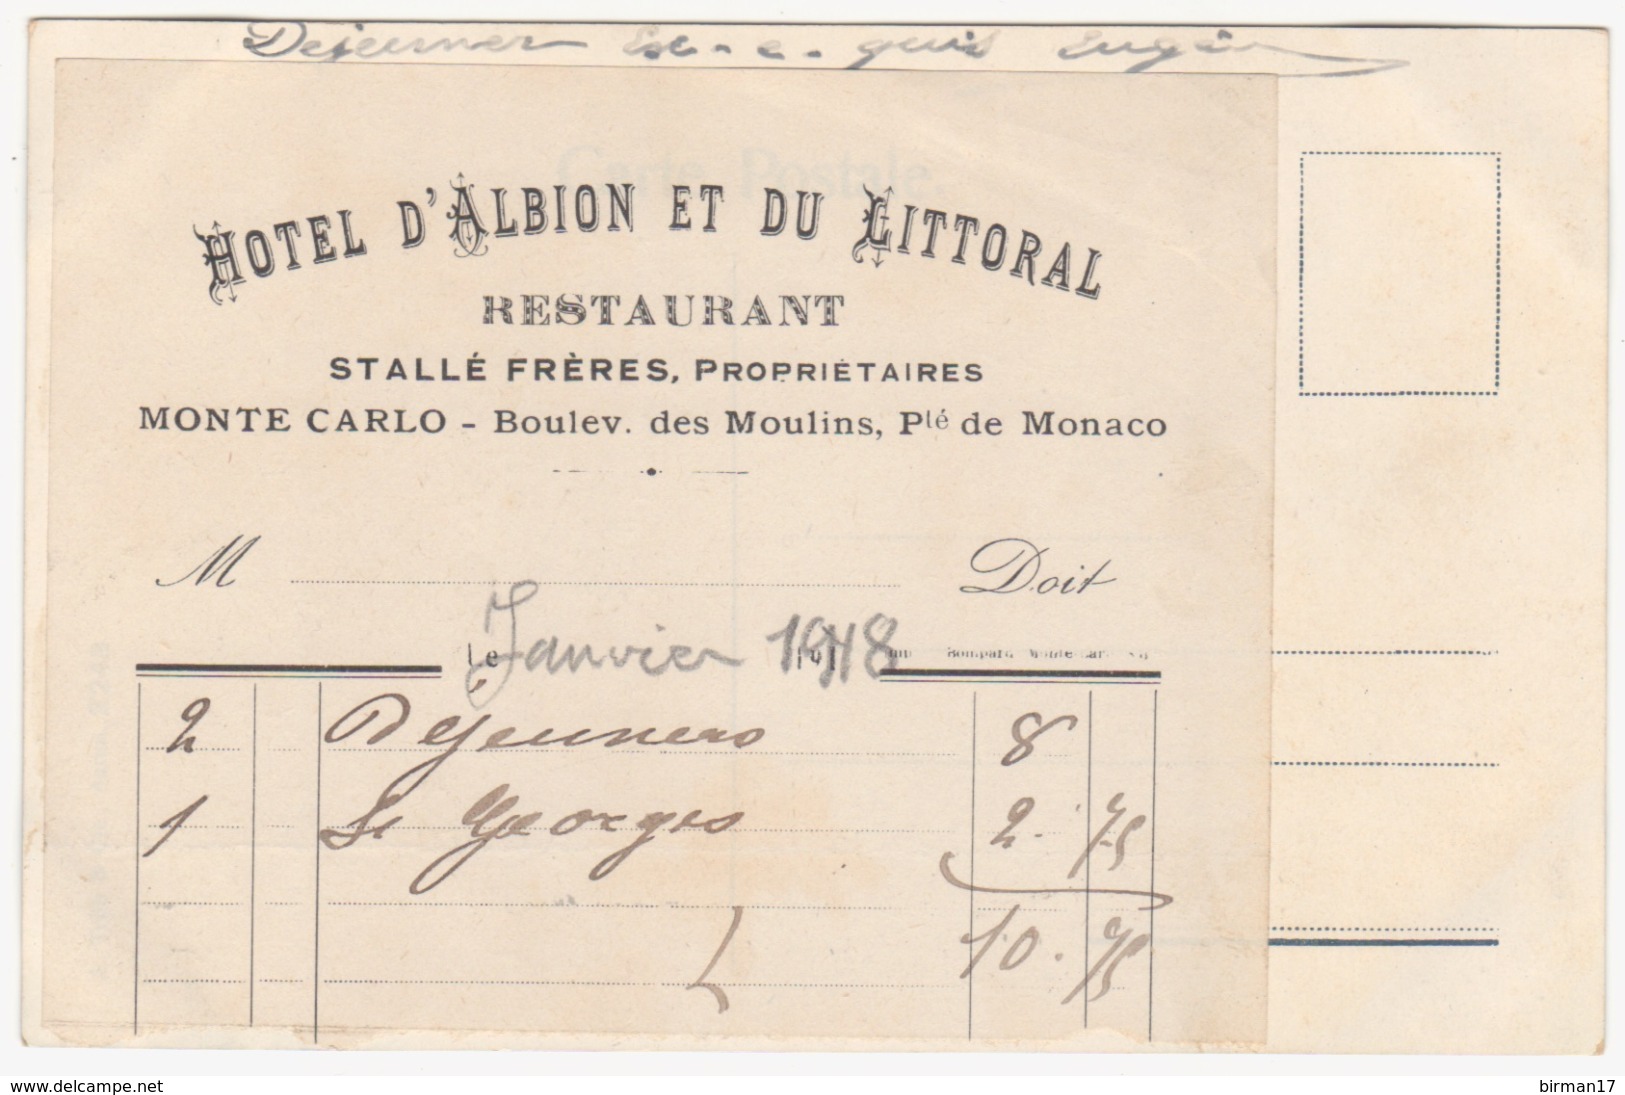 Dejeuner Ex-e-quis Eugén
Carte Postale.
HOTEL D'ALBION ET DU LITTORAL
RESTAURANT
STALLÉ FRÈRES, PROPRIÉTAIRES
MONTE CARLO - Boulev. des Moulins, Pté de Monaco
M Doit
le Janvier 1918
2 Dejeuners 8
1 St Georges 2. 75
10. 75
www.delcampe.net birman17